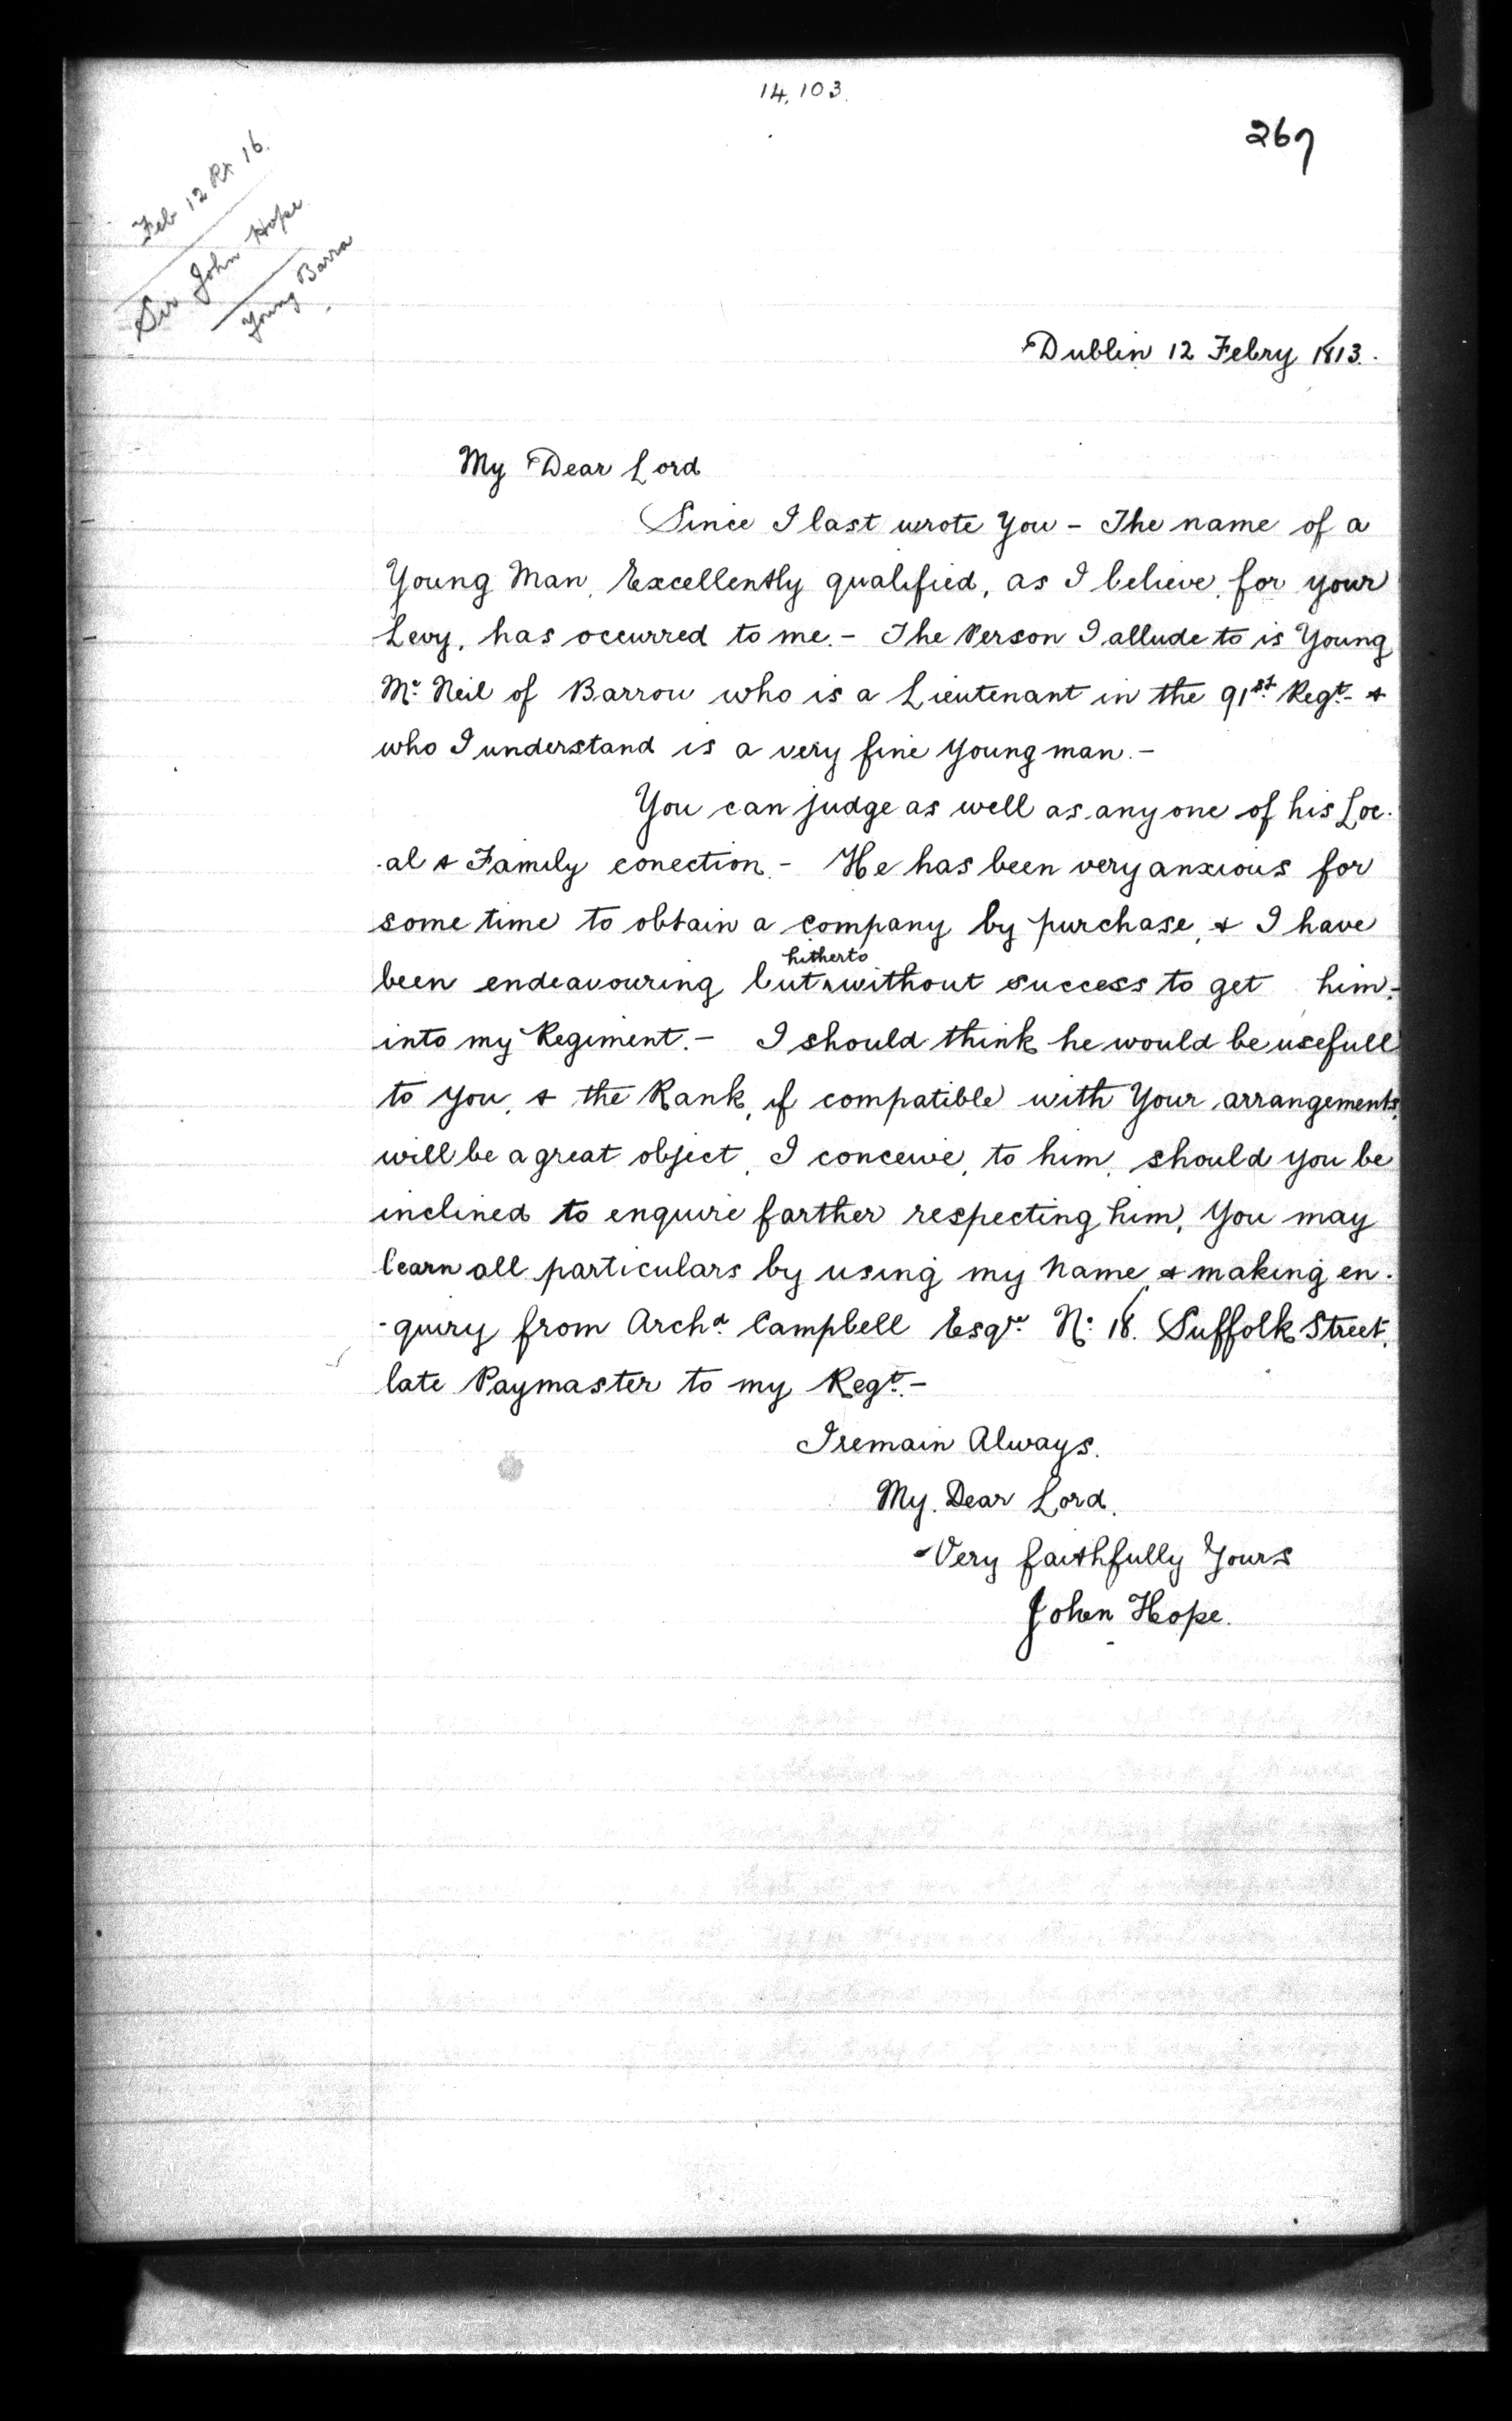 14,103.
267
Feb 12 Rx 16.
Sir John Hope
Young Barra
Dublin 12 Febry 1813.
My Dear Lord
Since I last wrote You - The name of a
Young Man, Excellently qualified, as I believe, for your
Levy, has occurred to me. - The Person I allude to is Young
Mc Neil of Barrow who is a Lieutenant in the 91st Regt - &
who I understand is a very fine Young man. -
You can judge as well as any one of his Loc-
-al & Family conection. - He has been very anxious for
some time to obtain a company by purchase, & I have
been endeavouring but ^hitherto without success to get him -
into my Regiment. - I should think he would be usefull
to You, & the Rank, if compatible with Your arrangements,
will be a great object, I conceive, to him, should you be
inclined to enquire farther respecting him, You may
learn all particulars by using my Name & making en-
-quiry from Archd Campbell Esqre No 18. Suffolk Street,
late Paymaster to my Regt. -
I remain Always.
My Dear Lord.
Very faithfully Yours
John Hope.